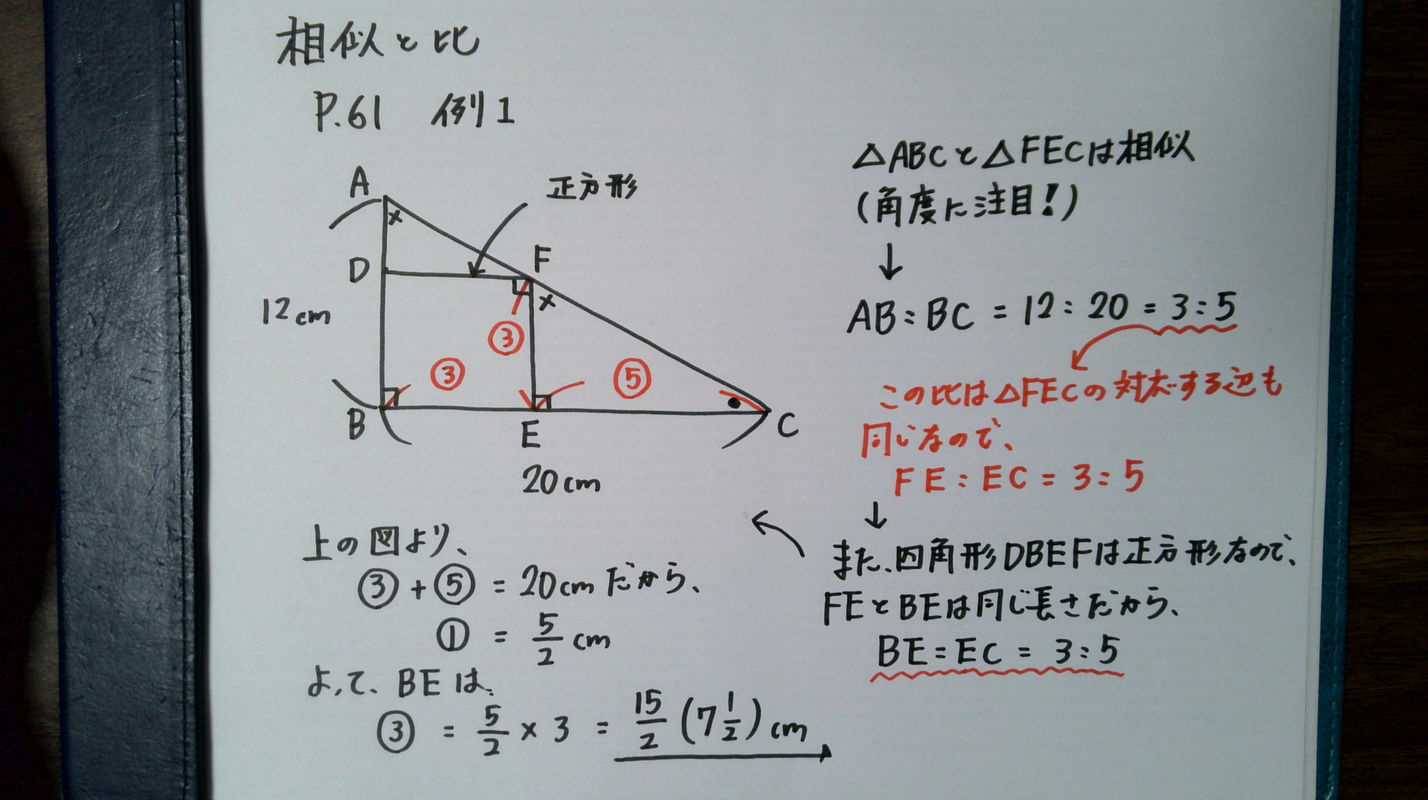 相似と比
P.61 例1
A
正方形
×
D
F
×
12cm
③
③
⑤
B
E
C
20cm
上の図より、
③+⑤=20cmだから、
①=5/2cm
よって、BEは、
③=5/2×3=15/2(7 1/2)cm
△ABCと△FECは相似
(角度に注目!)
↓
AB:BC=12:20=3:5
この比は△FECの対応する辺も
同じなので、
FE:EC=3:5
↓
また、四角形DBEFは正方形なので、
FEとBEは同じ長さだから、
BE:EC=3:5